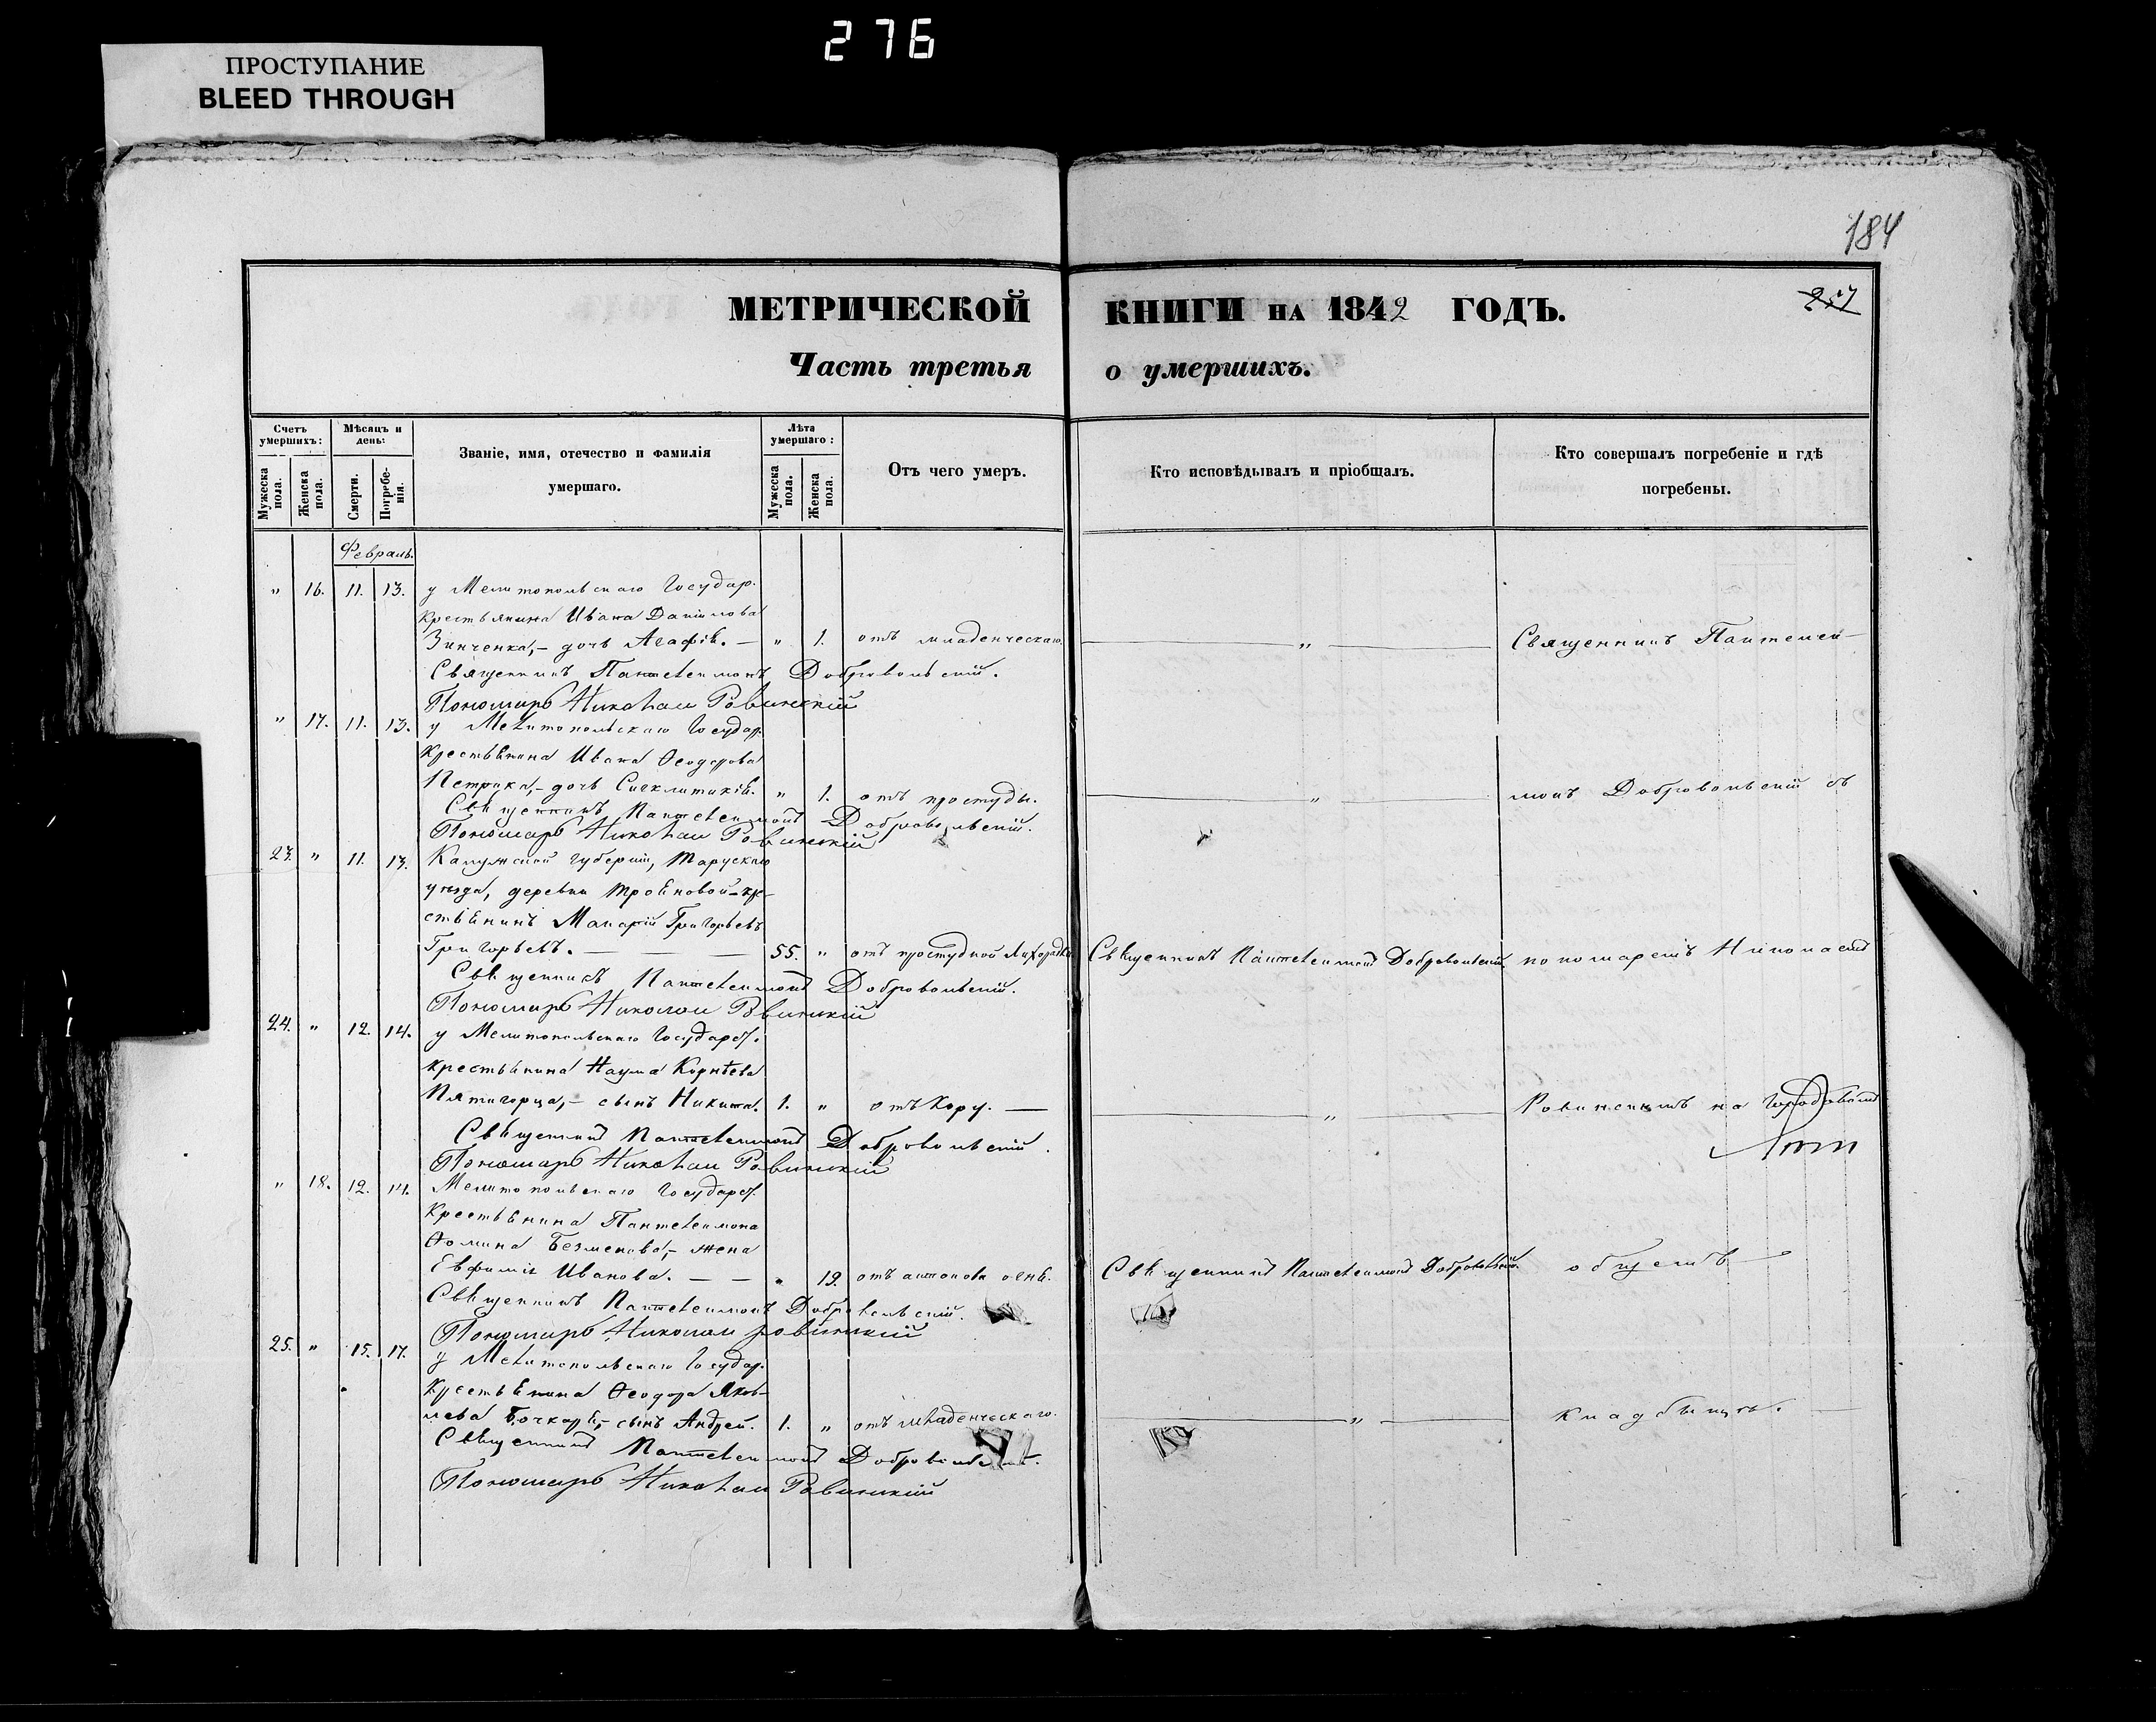 276
ПРОСТУПАНИЕ
BLEED THROUGH
184
МЕТРИЧЕСКОЙ КНИГИ НА 1842 ГОДЪ.
257
Часть третья о умершихъ.
Счетъ умершихъ:
Мужеска пола.
Женска пола.
Мѣсяцъ и день:
Смерти.
Погребенія.
Званіе, имя, отечество и фамилія умершаго.
Лѣта умершаго:
Мужеска пола.
Женска пола.
Отъ чего умеръ.
Кто исповѣдывалъ и пріобщалъ.
Кто совершалъ погребеніе и гдѣ погребены.
Февраль.
" 16. 11. 13. у Мелитопольскаго Государ.
крестьянина Ивана Данилова
Зинченка,- дочь Агафія. — " 1. отъ младенческаго. — " — Священникъ Пантелеи-
Священникъ Пантелеимонъ Добровольскій.
Пономарь Николай Ровинскій
" 17. 11. 13. у Мелитопольскаго Государ.
крестьянина Ивана Ѳеодорова
Петрика,- дочь Сигклитикія. " 1. отъ простуды. — " — монъ Добровольскій съ
Священникъ Пантелеимонъ Добровольскій.
Пономарь Николай Ровинскій
23. " 11. 13. Калужской губерніи, Тарускаго
уѣзда, деревни Трояновой-кре-
стьянинъ Макарій Григорьевъ
Григорьевъ. — — — 55. " отъ простудной лихорадки Священникъ Пантелеимонъ Добровольскій. пономаремъ Николаемъ
Священникъ Пантелеимонъ Добровольскій.
Пономарь Николай Ровинскій
24. " 12. 14. у Мелитопольскаго Государст.
крестьянина Наума Корнѣева
Пятигорца,- сынъ Никита. 1. " отъ кору. — — " — Ровинскимъ на Городовомъ
Священникъ Пантелеимонъ Добровольскій.
Пономарь Николай Ровинскій
" 18. 12. 14. Мелитопольскаго Государст.
крестьянина Пантелеимона
Ѳомина Безменова,- жена
Евфимія Иванова. — — " 19. отъ антонова огня. Священникъ Пантелеимонъ Добровольскій. общемъ —
Священникъ Пантелеимонъ Добровольскій.
Пономарь Николай Ровинскій
25. " 15. 17. у Мелитопольскаго Государ.
крестьянина Ѳеодора Яков-
лева Бочкаря,- сынъ Андрей. 1. " отъ младенческаго. — " — кладбищѣ. —
Священникъ Пантелеимонъ Добровольскій.
Пономарь Николай Ровинскій